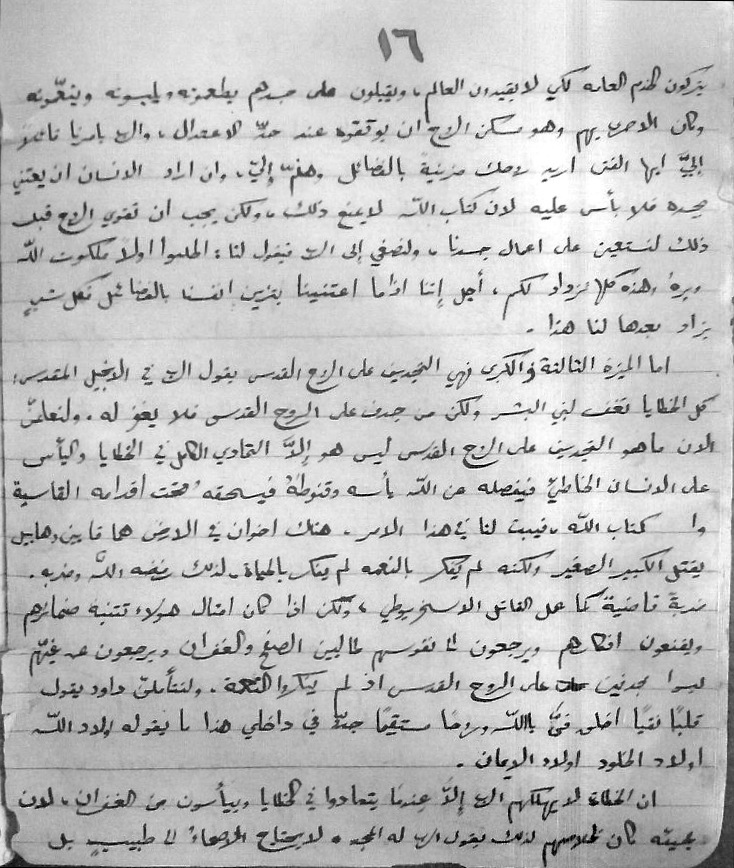 ١٦
يتركون الخدم العامه لكي لا يفيدون العالم، ويقبلون على جسدهم يطعمونه ويلبسونه وينعّمونه
وكان الاحرى بهم وهو مسكن الروح ان يوقفوه عند حدّ الاعتدال، والرب يامرنا قائلاً
إليّ ايها الفتى اريد روحك مزينة بالفضائل وهلمّ إليّ، وان اراد الانسان ان يعتني
بجسده فلا بأس عليه لان كتاب اللّه لا يمنع ذلك، ولكن يجب ان تقوي الروح قبل
ذلك لنستعين على اعمال جسدنا، ولنصغي إلى الرب فيقول لنا: اطلبوا اولاً ملكوت اللّه
وبرهُ وهذه كلها تزاد لكم، أجل إننا اذا ما اعتنينا بتزيين انفسنا بالفضائل فكل شيءٍ
يزاد بعدها لنا هذا.
اما الميزة الثالثة والكبرى فهي التجديف على الروح القدس يقول الرب في الانجيل المقدس:
كل الخطايا تغفر لبني البشر ولكن من جدف على الروح القدس فلا يغفر له. ولنعلمنّ
الان ما هو التجديف على الروح القدس ليس هو إلاَّ التمادي الكلي في الخطايا واليأس
على الانسان الخاطئ فيفصله عن اللّه يأسه وقنوطهُ فيسحقه تحت اقدامه القاسية
وا كتاب اللّه، فيبت لنا في هذا الامر. هناك اخوان في الارض هما قايين وهابيل
يقتل الكبير الصغير ولكنه لم يفكر بالنعمه لم يفكر بالحياة. لذلك رفضه اللّه وضربه.
ضربةً قاضية كما عمل القاتل الاسخريوطي، ولكن اذا كان امثال هولاء تتنبه ضمائرهم
ويقنعون افكارهم ويرجعون الى نفوسهم طالبين الصفح والغفران ويرجعون عن غيّهم
ليسوا مجدفين على الروح القدس اذ لم ينكروا النعمة. ولنتأملنّ داود يقول
قلبًا نقيًا اخلق فيَّ يا اللّه وروحًا مستقيمًا جدّد في داخلي هذا ما يقوله اولاد اللّه
اولاد الخلود اولاد الايمان.
ان الخطاة لا يهلكهم الرب إلاَّ عندما يتمادوا في الخطايا وييأسون من الغفران، لان
مجيئه كان لخلاصهم لذلك يقول الرب له المجد، لا يحتاج الاصحاءُ الى طبيبٍ بل